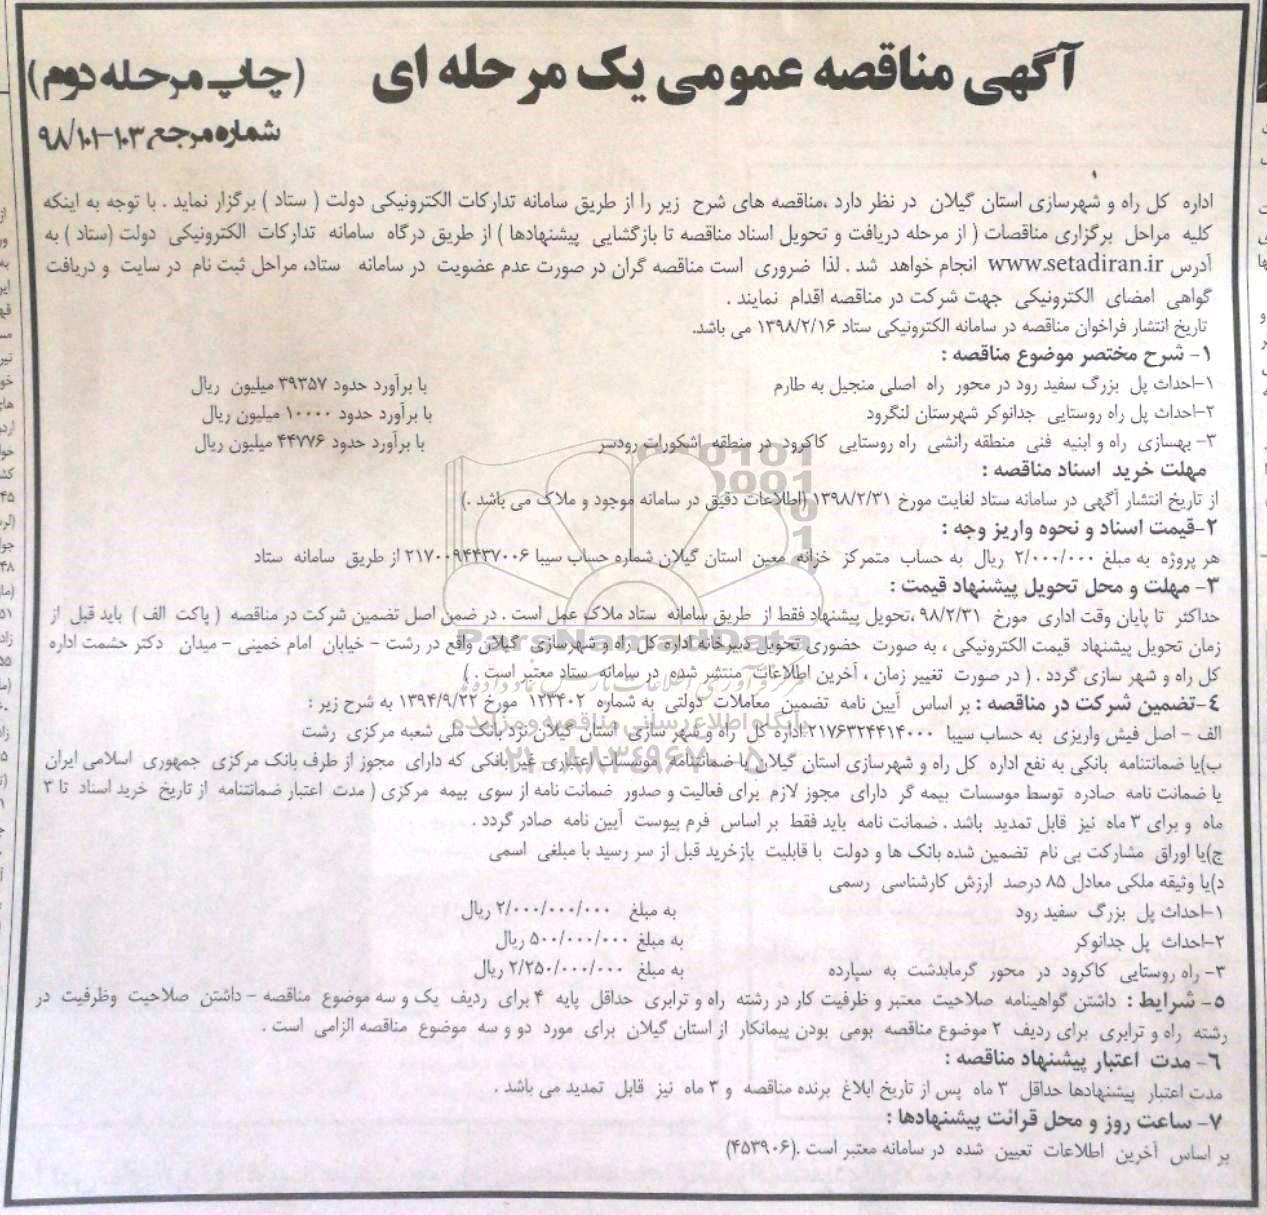 آگهی مناقصه عمومی یک مرحله ای (چاپ مرحله دوم)
شماره مرجع ۱۰۳-۹۸/۱۰۱
اداره کل راه و شهرسازی استان گیلان در نظر دارد ،مناقصه های شرح زیر را از طریق سامانه تدارکات الکترونیکی دولت ( ستاد ) برگزار نماید . با توجه به اینکه
کلیه مراحل برگزاری مناقصات ( از مرحله دریافت و تحویل اسناد مناقصه تا بازگشایی پیشنهادها ) از طریق درگاه سامانه تدارکات الکترونیکی دولت (ستاد ) به
آدرس www.setadiran.ir انجام خواهد شد . لذا ضروری است مناقصه گران در صورت عدم عضویت در سامانه ستاد، مراحل ثبت نام در سایت و دریافت
گواهی امضای الکترونیکی جهت شرکت در مناقصه اقدام نمایند .
تاریخ انتشار فراخوان مناقصه در سامانه الکترونیکی ستاد ۱۳۹۸/۲/۱۶ می باشد.
۱- شرح مختصر موضوع مناقصه :
۱-احداث پل بزرگ سفید رود در محور راه اصلی منجیل به طارم با برآورد حدود ۳۹۳۵۷ میلیون ریال
۲-احداث پل راه روستایی جدانوکر شهرستان لنگرود با برآورد حدود ۱۰۰۰۰ میلیون ریال
۳- بهسازی راه و ابنیه فنی منطقه رانشی راه روستایی کاکرود در منطقه اشکورات رودسر با برآورد حدود ۴۴۷۷۶ میلیون ریال
مهلت خرید اسناد مناقصه :
از تاریخ انتشار آگهی در سامانه ستاد لغایت مورخ ۱۳۹۸/۲/۳۱ (اطلاعات دقیق در سامانه موجود و ملاک می باشد .)
۲-قیمت اسناد و نحوه واریز وجه :
هر پروژه به مبلغ ۲/۰۰۰/۰۰۰ ریال به حساب متمرکز خزانه معین استان گیلان شماره حساب سیبا ۲۱۷۰۰۹۴۴۳۷۰۰۶ از طریق سامانه ستاد
۳- مهلت و محل تحویل پیشنهاد قیمت :
حداکثر تا پایان وقت اداری مورخ ۹۸/۲/۳۱ ،تحویل پیشنهاد فقط از طریق سامانه ستاد ملاک عمل است . در ضمن اصل تضمین شرکت در مناقصه ( پاکت الف ) باید قبل از
زمان تحویل پیشنهاد قیمت الکترونیکی ، به صورت حضوری تحویل دبیرخانه اداره کل راه و شهرسازی گیلان واقع در رشت - خیابان امام خمینی - میدان دکتر حشمت اداره
کل راه و شهر سازی گردد . ( در صورت تغییر زمان ، آخرین اطلاعات منتشر شده در سامانه ستاد معتبر است . )
۴-تضمین شرکت در مناقصه : بر اساس آیین نامه تضمین معاملات دولتی به شماره ۱۲۳۴۰۲ مورخ ۱۳۹۴/۹/۲۲ به شرح زیر :
الف - اصل فیش واریزی به حساب سیبا ۲۱۷۶۳۲۴۴۱۴۰۰۰ اداره کل راه و شهر سازی استان گیلان نزد بانک ملی شعبه مرکزی رشت
ب)یا ضمانتنامه بانکی به نفع اداره کل راه و شهرسازی استان گیلان یا ضمانتنامه موسسات اعتباری غیر بانکی که دارای مجوز از طرف بانک مرکزی جمهوری اسلامی ایران
یا ضمانت نامه صادره توسط موسسات بیمه گر دارای مجوز لازم برای فعالیت و صدور ضمانت نامه از سوی بیمه مرکزی ( مدت اعتبار ضمانتنامه از تاریخ خرید اسناد تا ۳
ماه و برای ۳ ماه نیز قابل تمدید باشد . ضمانت نامه باید فقط بر اساس فرم پیوست آیین نامه صادر گردد .
ج)یا اوراق مشارکت بی نام تضمین شده بانک ها و دولت با قابلیت بازخرید قبل از سر رسید با مبلغی اسمی
د)یا وثیقه ملکی معادل ۸۵ درصد ارزش کارشناسی رسمی
۱-احداث پل بزرگ سفید رود به مبلغ ۲/۰۰۰/۰۰۰/۰۰۰ ریال
۲-احداث پل جدانوکر به مبلغ ۵۰۰/۰۰۰/۰۰۰ ریال
۳- راه روستایی کاکرود در محور گرمابدشت به سپارده به مبلغ ۲/۲۵۰/۰۰۰/۰۰۰ ریال
۵- شرایط : داشتن گواهینامه صلاحیت معتبر و ظرفیت کار در رشته راه و ترابری حداقل پایه ۴ برای ردیف یک و سه موضوع مناقصه - داشتن صلاحیت وظرفیت در
رشته راه و ترابری برای ردیف ۲ موضوع مناقصه بومی بودن پیمانکار از استان گیلان برای مورد دو و سه موضوع مناقصه الزامی است .
۶- مدت اعتبار پیشنهاد مناقصه :
مدت اعتبار پیشنهادها حداقل ۳ ماه پس از تاریخ ابلاغ برنده مناقصه و ۳ ماه نیز قابل تمدید می باشد .
۷- ساعت روز و محل قرائت پیشنهادها :
بر اساس آخرین اطلاعات تعیین شده در سامانه معتبر است .(۴۵۳۹۰۶)
ParsNamadData
پایگاه اطلاع رسانی مناقصه و مزایده